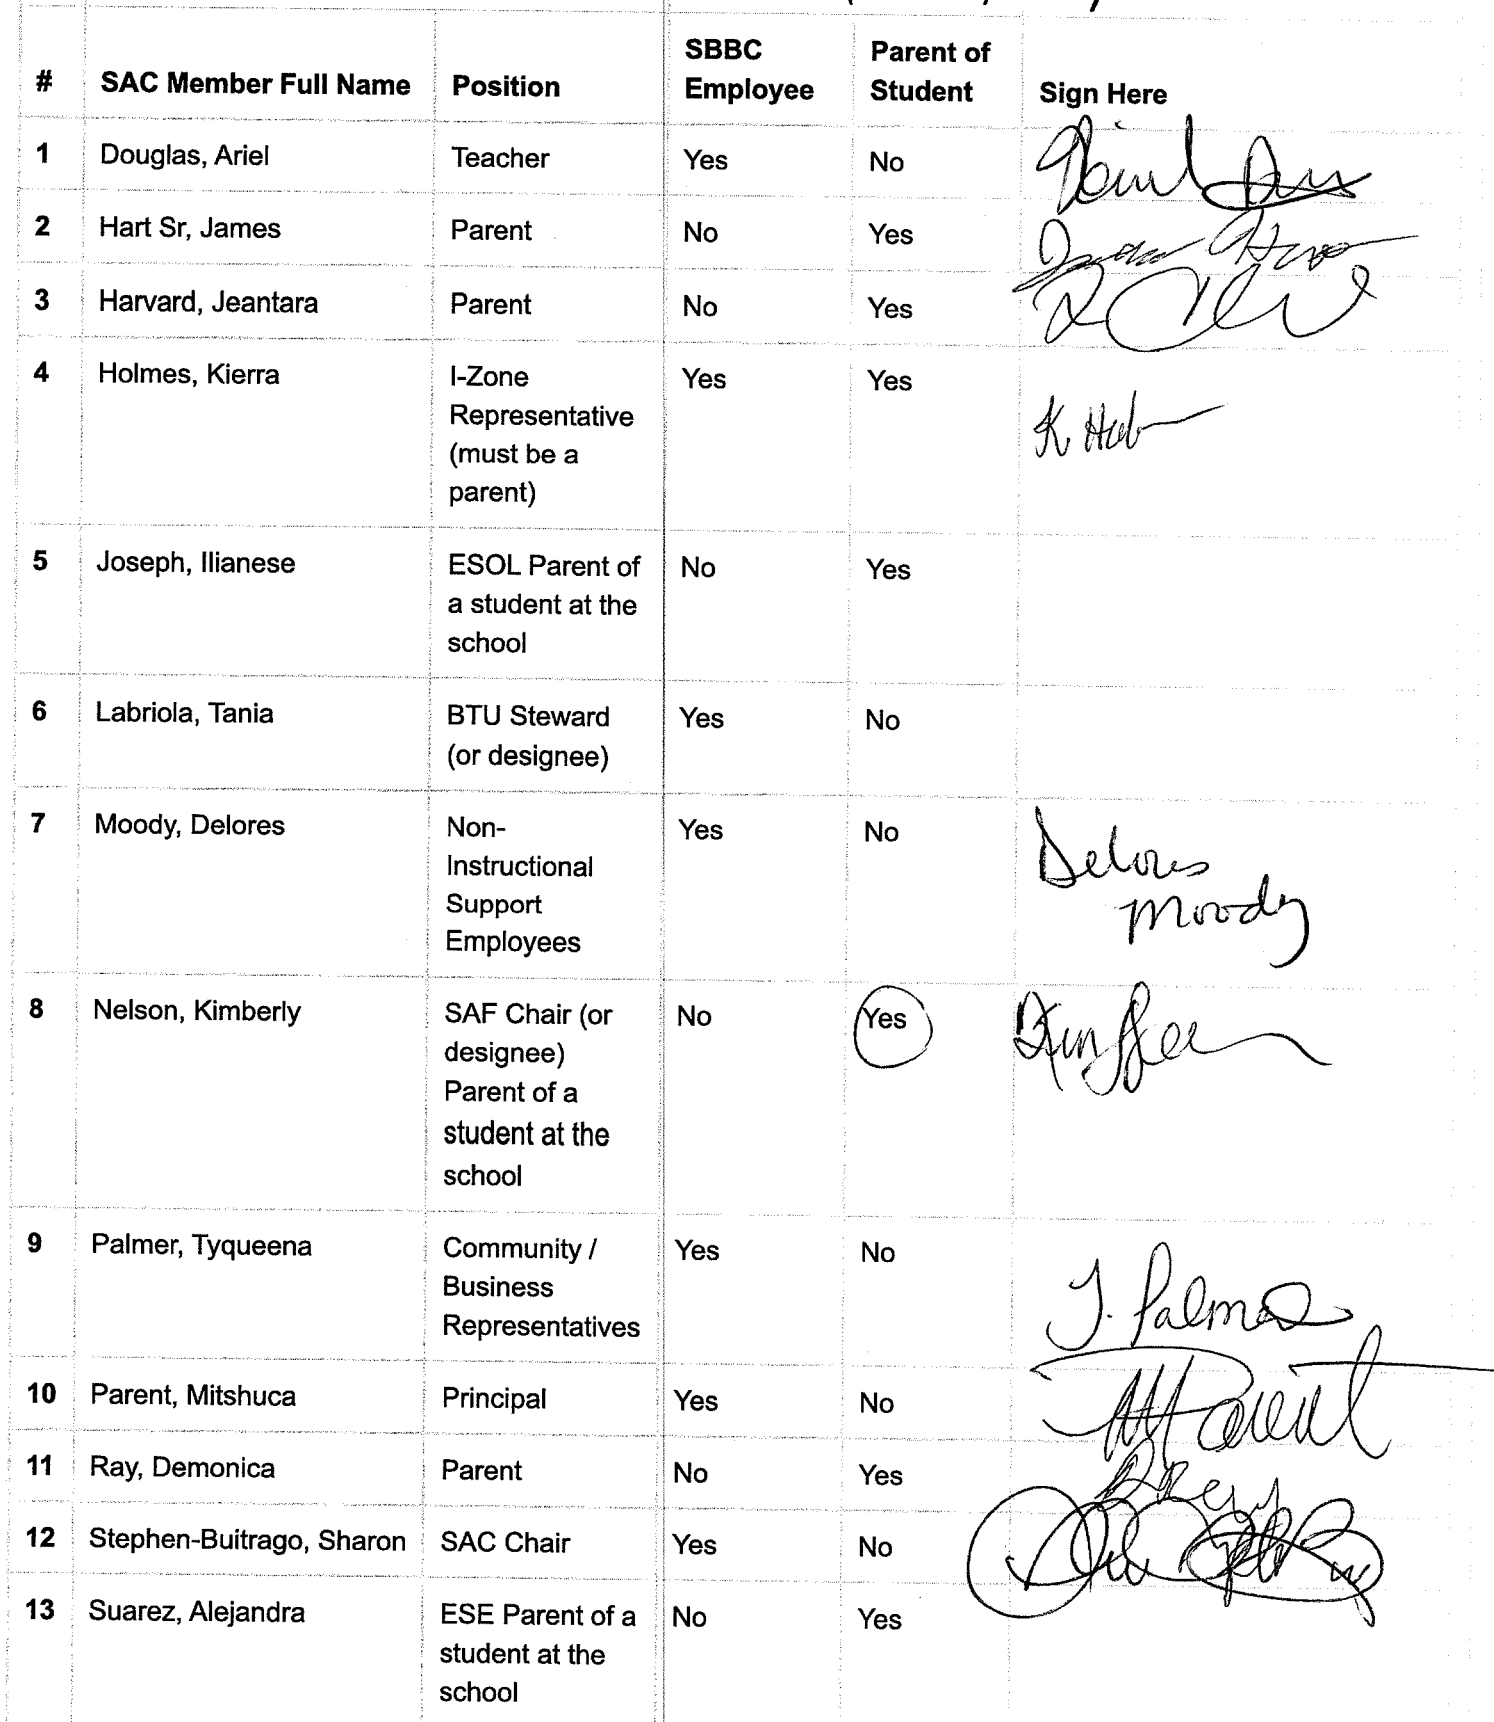 # SAC Member Full Name Position SBBC Employee Parent of Student Sign Here
1 Douglas, Ariel Teacher Yes No
2 Hart Sr, James Parent No Yes
3 Harvard, Jeantara Parent No Yes
4 Holmes, Kierra I-Zone Yes Yes
Representative
(must be a
parent)
K
5 Joseph, Ilianese ESOL Parent of No Yes
a student at the
school
6 Labriola, Tania BTU Steward Yes No
(or designee)
7 Moody, Delores Non- Yes No
Instructional
Support
Employees
Delores
Moody
8 Nelson, Kimberly SAF Chair (or No Yes
designee)
Parent of a
student at the
school
9 Palmer, Tyqueena Community / Yes No
Business
Representatives
T. Palmer
10 Parent, Mitshuca Principal Yes No M Parent
11 Ray, Demonica Parent No Yes
12 Stephen-Buitrago, Sharon SAC Chair Yes No
13 Suarez, Alejandra ESE Parent of a No Yes
student at the
school